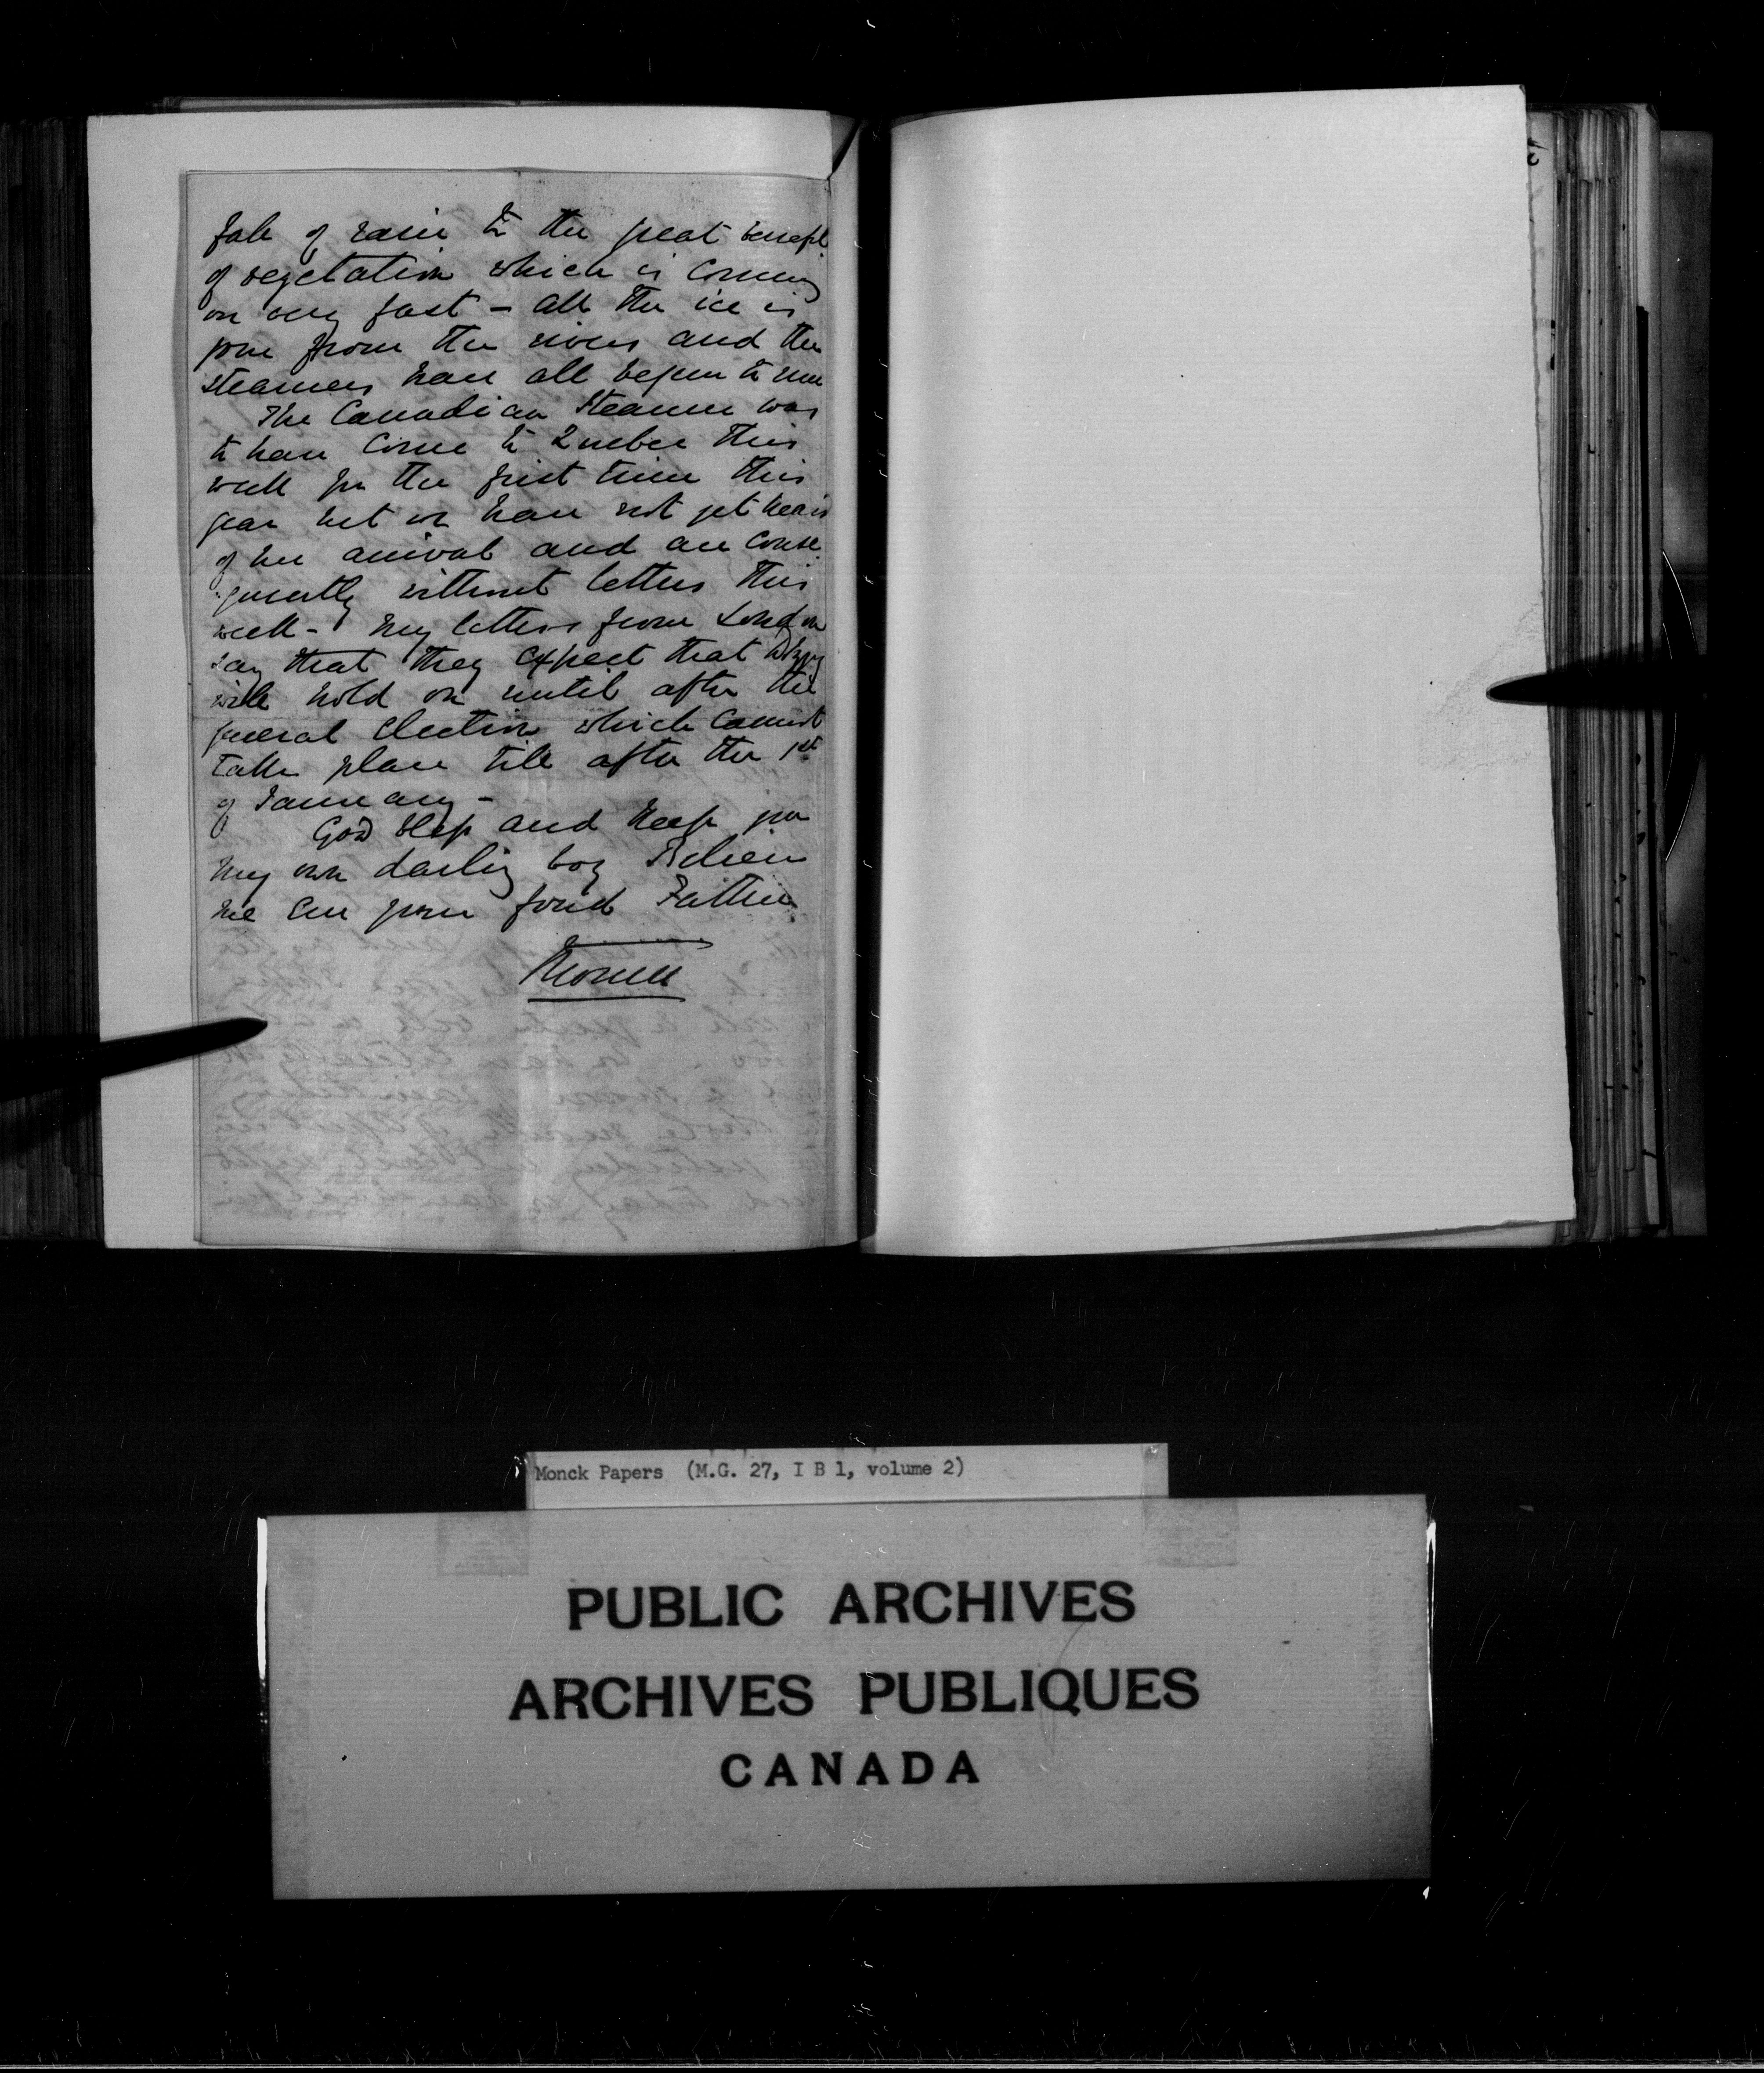 fall of rain to the great benefit
of vegetation which is coming
on very fast – all the ice is
gone from the rivers and the
steamers have all begun to run
The Canadian Steamer was
to have come to Quebec this
week for the first time this
year but we have not yet heard
of her arrival and are conse
quently without letters this
week – My letters from London
say that they expect that Dizzy
will hold on until after the
general election which cannot
take place till after the 1st
of January –
God bless and keep you
my own darling boy Believe
me ever your fond Father
Monck
Monck Papers (M.G. 27, I B 1, volume 2)
PUBLIC ARCHIVES
ARCHIVES PUBLIQUES
CANADA